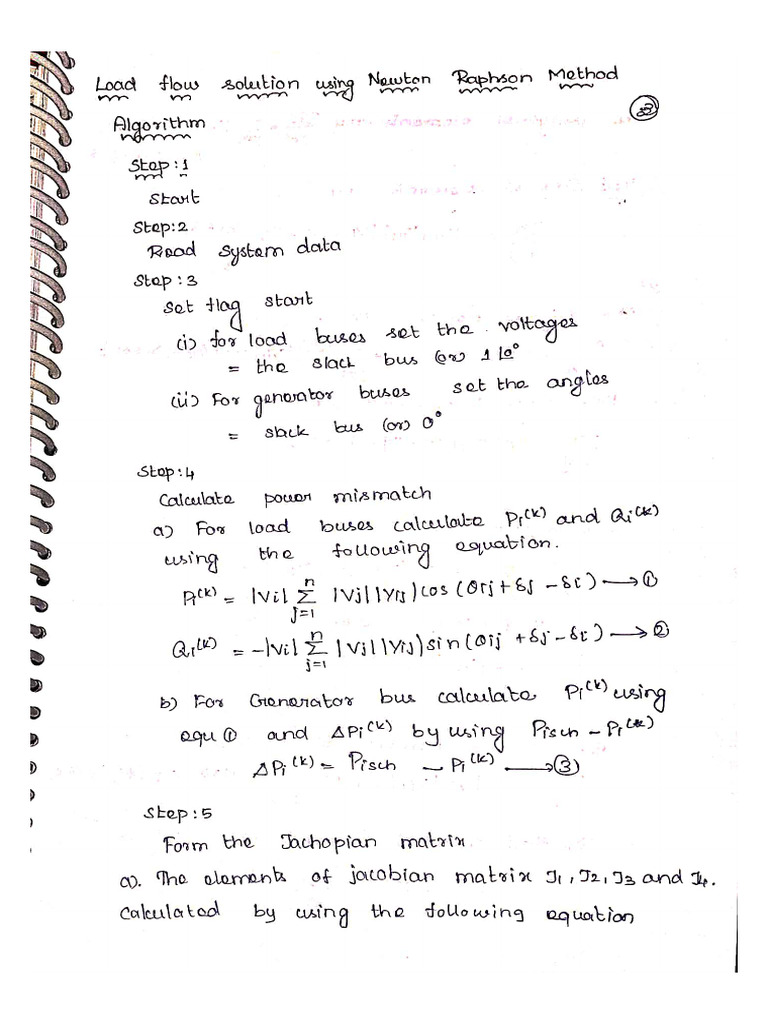 Load flow solution using Newton Raphson Method
Algorithm
Step:1
Start
Step:2
Read system data
Step:3
Set flag start
(i) for load buses set the voltages
= the slack bus (or) 1∠0°
(ii) For generator buses set the angles
= slack bus (or) 0°
Step:4
Calculate power mismatch
a) For load buses calculate Pi(k) and Qi(k)
using the following equation.
Pi(k) = |Vi| n Σ j=1 |Vj| |Yij| cos (θij + δj - δi) → ①
Qi(k) = -|Vi| n Σ j=1 |Vj| |Yij| sin (θij + δj - δi) → ②
b) For Generator bus calculate Pi(k) using
equ ① and ΔPi(k) by using Pisch - Pi(k)
ΔPi(k) = Pisch - Pi(k) → ③
Step:5
Form the Jachopian matrix
a). The elements of jacobian matrix J1, J2, J3 and J4.
Calculated by using the following equation